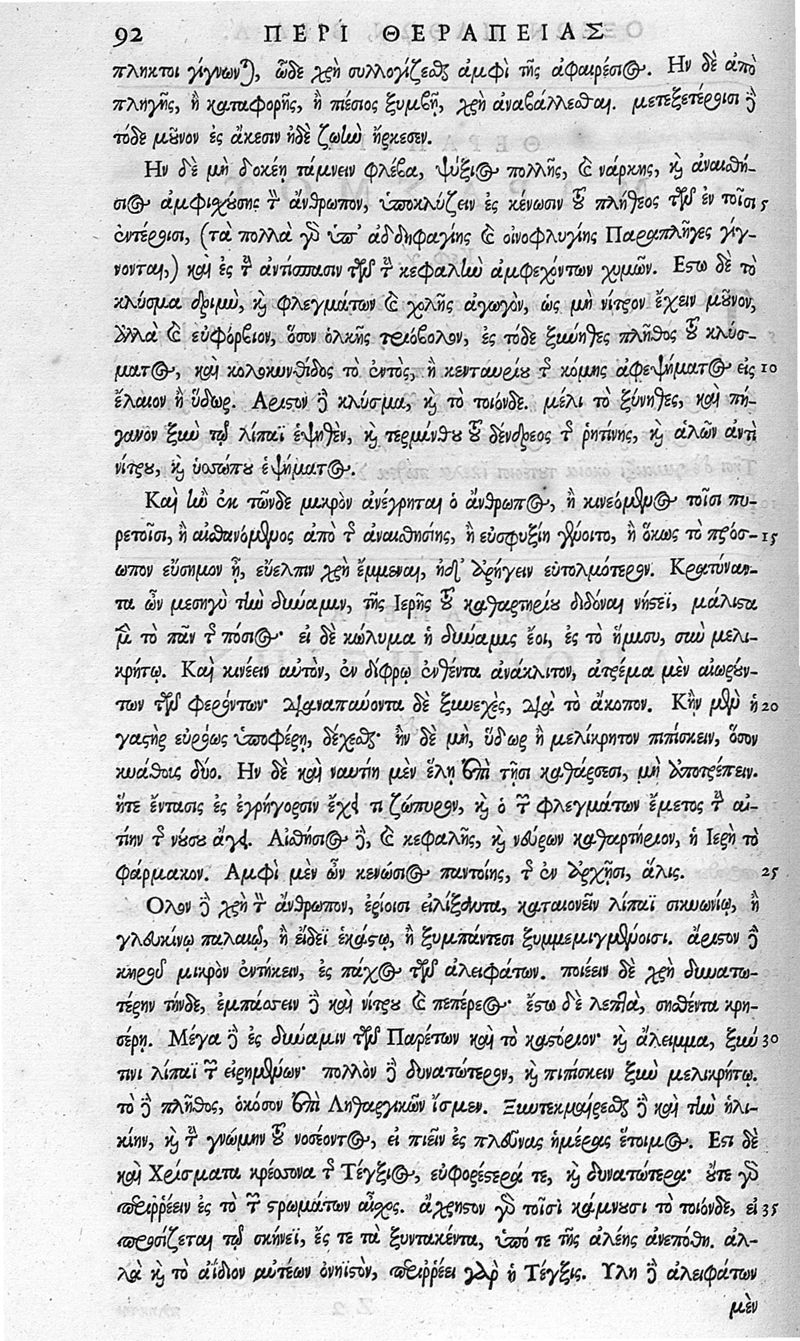 92 ΠΕΡΙ ΘΕΡΑΠΕΙΑΣ
πληκτοι γίγνονται), ὧδε χρὴ συλλογίζεσθαι ἀμφὶ τῆς ἀφαιρέσιος. Ην δὲ ἀπὸ
πληγῆς, ἢ καταφορῆς, ἢ πιέσιος ξυμβῇ, χρὴ ἀναβάλλεσθαι. μετεξετέροισι δὲ
τόδε μοῦνον ἐς ἄκεσιν ἠδὲ ζωὴν ἤρκεσεν.
Ην δὲ μὴ δοκέῃ τάμνειν φλέβα, ψύξιος πολλῆς, καὶ νάρκης, καὶ ἀναισθή-
σιος ἀμφιχύσης τὸν ἄνθρωπον, ὑποκλύζειν ἐς κένωσιν τοῦ πλήθεος τῶν ἐν τοῖσι 5
ἐντέροισι, (τὰ πολλὰ γὰρ ὑπ' ἀδδηφαγίης καὶ οἰνοφλυγίης Παραπλῆγες γίγ-
νονται,) καὶ ἐς τὴν ἀντίσπασιν τῶν τὴν κεφαλὴν ἀμφεχόντων χυμῶν. Εστω δὲ τὸ
κλύσμα δριμὺ, καὶ φλεγμάτων καὶ χολῆς ἀγωγὸν, ὡς μὴ νίτρον ἔχειν μοῦνον,
ἀλλὰ καὶ εὐφόρβιον, ὅσον ὁλκῆς τριόβολον, ἐς τόδε ξύνηθες πλῆθος τοῦ κλύσ-
ματος, καὶ κολοκυνθίδος τὸ ἐντὸς, ἢ κενταυρίου τῆς κόμης ἀφεψήματος εἰς 10
ἔλαιον ἢ ὕδωρ. Αριστον δὲ κλύσμα, καὶ τὸ τοιόνδε. μέλι τὸ ξύνηθες, καὶ πή-
γανον ξὺν τῷ λίπαϊ ἑψηθὲν, καὶ τερμίνθου τοῦ δένδρεος τῆς ῥητίνης, καὶ ἁλῶν ἀντὶ
νίτρου, καὶ ὑσσώπου ἑψήματος.
Καὶ ἢν ἐκ τῶνδε μικρὸν ἀνέγρηται ὁ ἄνθρωπος, ἢ κινεόμενος τοῖσι πυ-
ρετοῖσι, ἢ αἰσθανόμενος ἀπὸ τῆς ἀναισθησίης, ἢ εὐσφυξίη γένοιτο, ἢ ὅκως τὸ πρόσ- 15
ωπον εὔσημον ᾖ, εὔελπιν χρὴ ἔμμεναι, ἠδ' ἀρήγειν εὐτολμότερον. Κρατύναν-
τα ὦν μεσηγὺ τὴν δύναμιν, τῆς Ιερῆς τοῦ καθαρτηρίου διδόναι νήστεϊ, μάλιστα
μὲν τὸ πᾶν τῆς πόσιος· εἰ δὲ κώλυμα ἡ δύναμις ἔοι, ἐς τὸ ἥμισυ, σὺν μελι-
κρήτῳ. Καὶ κινέειν αὐτὸν, ἐν δίφρῳ ἐνθέντα ἀνάκλιτον, ἀτρέμα μὲν αἰωρούν-
των τῶν φερόντων· διαναπαύοντα δὲ ξυνεχὲς, διὰ τὸ ἄκοπον. Κἢν μὲν ἡ 20
γαστὴρ εὐρόως ὑποφέρῃ, δέχεσθαι· ἢν δὲ μὴ, ὕδωρ ἢ μελίκρητον πιπίσκειν, ὅσον
κυάθοις δύο. Ην δὲ καὶ ναυτίη μὲν ἕλῃ ἐπὶ τῇσι καθάρσεσι, μὴ ἀποτρέπειν.
ἥτε ἔντασις ἐς ἐγρήγορσιν ἔχει τι ζώπυρον, καὶ ὁ τῶν φλεγμάτων ἔμετος τὴν αἰ-
τίην τῆς νούσου ἄγει. Αἰσθήσιος δὲ, καὶ κεφαλῆς, καὶ νεύρων καθαρτήριον, ἡ Ιερὴ τὸ
φάρμακον. Αμφὶ μὲν ὦν κενώσιος παντοίης, τῆς ἐν ἀρχῇσι, ἅλις. 25
Ολον δὲ χρὴ τὸν ἄνθρωπον, ἐρίοισι εἱλίξαντα, καταιονεῖν λίπαϊ σικυωνίῳ, ἢ
γλευκίνῳ παλαιῷ, ἢ εἴδεϊ ἑκάστῳ, ἢ ξυμπάντεσι ξυμμεμιγμένοισι. ἄριστον δὲ
κηροῦ μικρὸν ἐντήκειν, ἐς πάχος τῶν ἀλειφάτων. ποιέειν δὲ χρὴ δυνατω-
τέρην τήνδε, ἐμπάσσειν δὲ καὶ νίτρου καὶ πεπέρεος· ἔστω δὲ λεπτὰ, σησθέντα κρη-
σέρῃ. Μέγα δὲ ἐς δύναμιν τῶν Παρέτων καὶ τὸ καστόριον· καὶ ἄλειμμα, ξύν 30
τινι λίπαϊ τῶν εἰρημένων· πολλὸν δὲ δυνατώτερον, καὶ πιπίσκειν ξὺν μελικρήτῳ.
τὸ δὲ πλῆθος, ὁκόσον ἐπὶ Ληθαργικῶν ἴσμεν. Ξυντεκμαίρεσθαι δὲ καὶ τὴν ἡλι-
κίην, καὶ τὴν γνώμην τοῦ νοσέοντος, εἰ πιεῖν ἐς πλεῦνας ἡμέρας ἕτοιμος. Εστι δὲ
καὶ Χρίσματα κρέσσονα τῆς Τέγξιος, εὐφορέστερά τε, καὶ δυνατώτερα· οὔτε γὰρ
περιῤῥέειν ἐς τὸ τῶν στρωμάτων αἶσχος. ἄχρηστον γὰρ τοῖσι κάμνουσι τὸ τοιόνδε, εἰ 35
προσίζεται τῷ σκήνεϊ, ἔς τε τὰ ξυντακέντα, ὑπό τε τῆς ἀλέης ἀνεπόθη. ἀλ-
λὰ καὶ τὸ ἀΐδιον αὐτέων ὀνήϊστον, περιῤῥέει γὰρ ἡ Τέγξις. Υλη δὲ ἀλειφάτων
μὲν